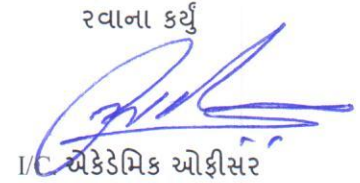 રવાના કર્યું
I/C. એકેડેમિક ઓફીસર